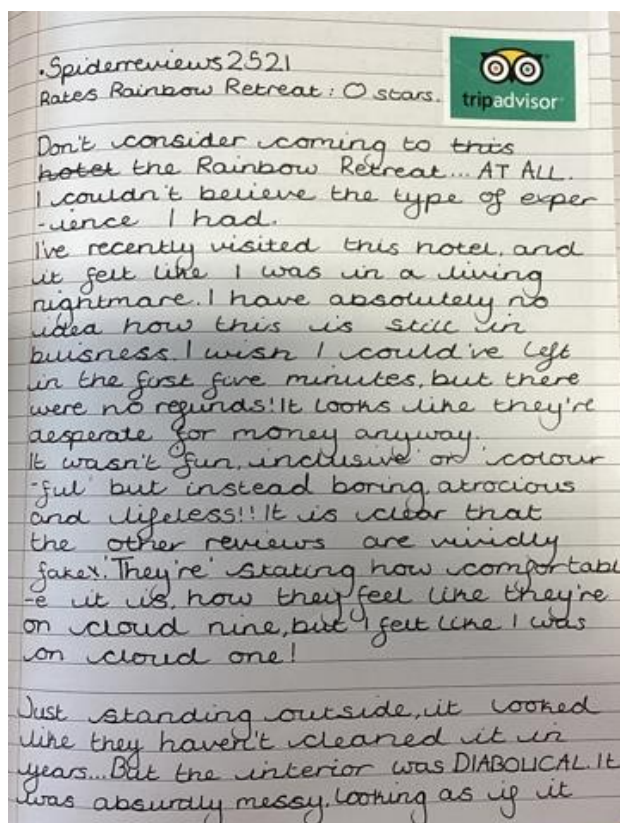 .Spiderreviews2521
Rates Rainbow Retreat: 0 stars.
tripadvisor
Don't consider coming to this
hotel the Rainbow Retreat... AT ALL.
I couldn't believe the type of exper
-ience I had.
I've recently visited this hotel, and
it felt like I was in a living
nightmare. I have absolutely no
idea how this is still in
buisness. I wish I could've left
in the first five minutes, but there
were no refunds! It looks like they're
desperate for money anyway.
It wasn't fun, inclusive or 'colour
-ful' but instead boring, atrocious
and lifeless!! It is clear that
the other reviews are vividly
fake. 'They're' stating how comfortabl
-e it is, how they feel like they're
on cloud nine, but I felt like I was
on cloud one!
Just standing outside, it looked
like they haven't cleaned it in
years... But the interior was DIABOLICAL. It
was absurdly messy, looking as if it